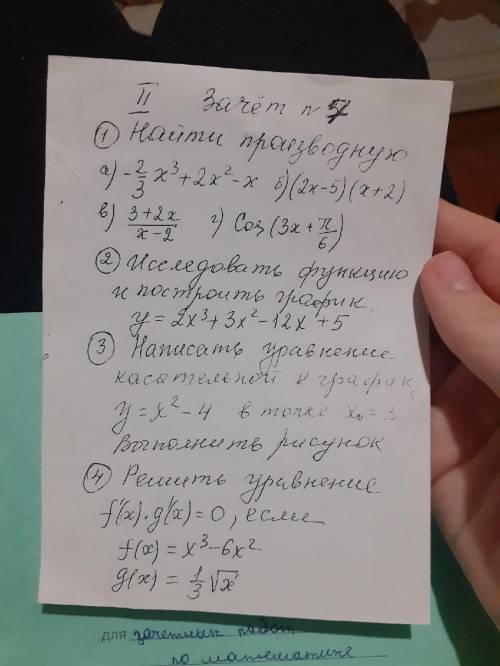 II Зачёт № 7
① Найти производную
а) -2/3 x³ + 2x² - x б) (2x-5)(x+2)
в) 3+2x / x-2 г) Cos (3x + π/6)
② Исследовать функцию
и построить график
y = 2x³ + 3x² - 12x + 5
③ Написать уравнение
касательной к график
y = x² - 4 в точке x₀ = 3
Выполнить рисунок
④ Решить уравнение
f'(x) · g'(x) = 0, если
f(x) = x³ - 6x²
g(x) = 1/3 √x
для зачетных работ
по математике